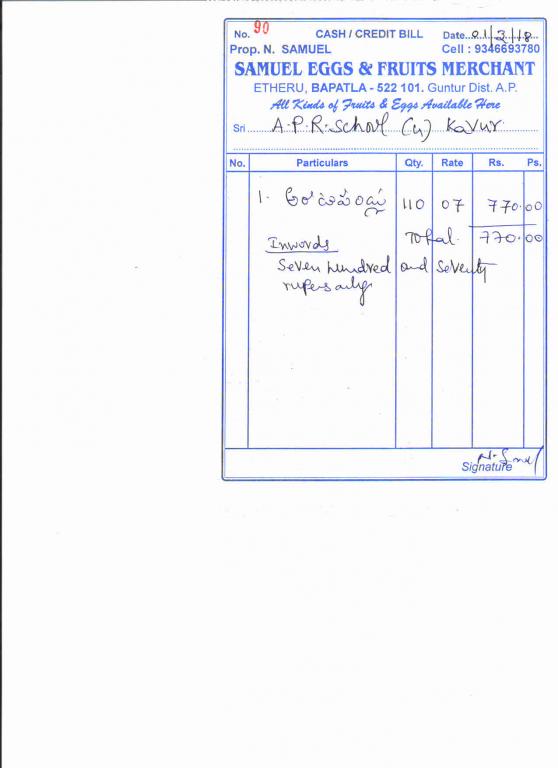 No. 90 CASH / CREDIT BILL Date...01/3/18
Prop. N. SAMUEL Cell : 9346693780
SAMUEL EGGS & FRUITS MERCHANT
ETHERU, BAPATLA - 522 101. Guntur Dist. A.P.
All Kinds of Fruits & Eggs Available Here
Sri A.P.R. School (U) Kavur
No. Particulars Qty. Rate Rs. Ps.
1. అరటిపండ్లు 110 07 770.00
Total. 770.00
Inwords
Seven hundred and seventy
rupees only
Signature